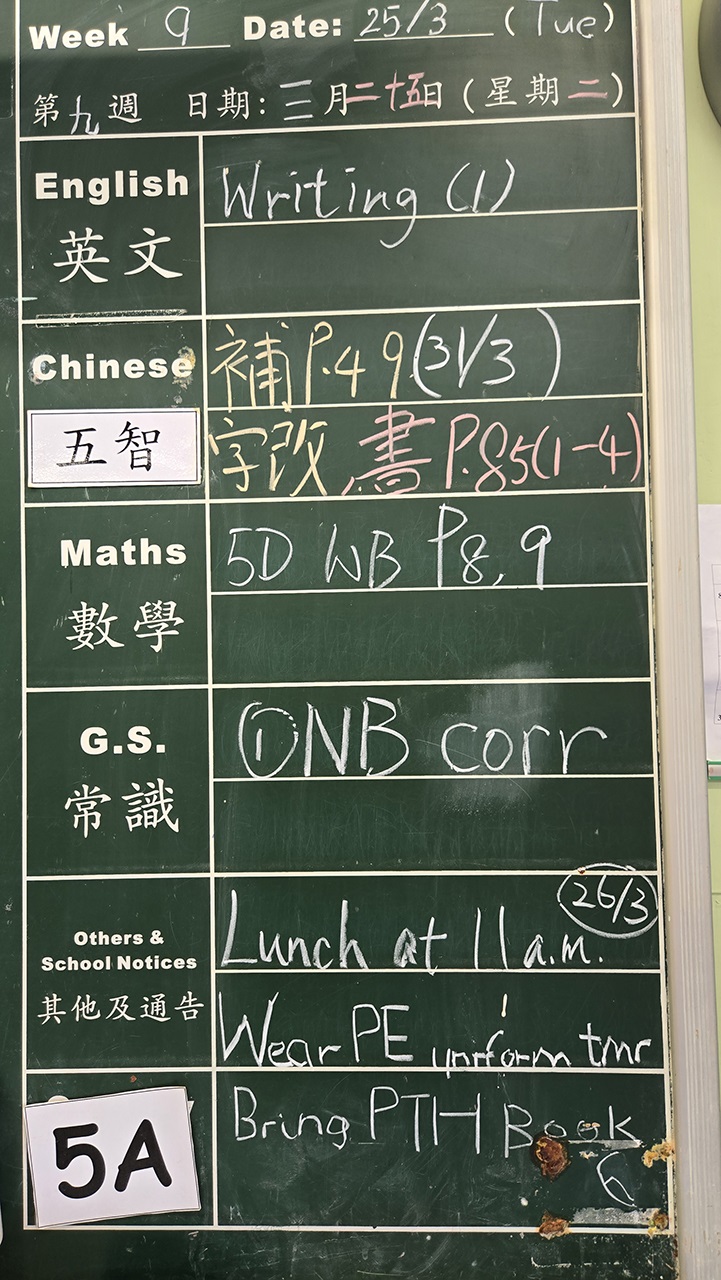 Week 9 Date: 25/3 (Tue)
第九週 日期: 三月二十五日 (星期二)
English
Writing (1)
英文
Chinese
補 P.49 (31/3)
五智
字改 書 P.85(1-4)
Maths
5D WB P8, 9
數學
G.S.
① NB corr
常識
26/3
Others &
School Notices
Lunch at 11 a.m.
其他及通告
Wear PE uniform tmr
5A
Bring PTH Book
6